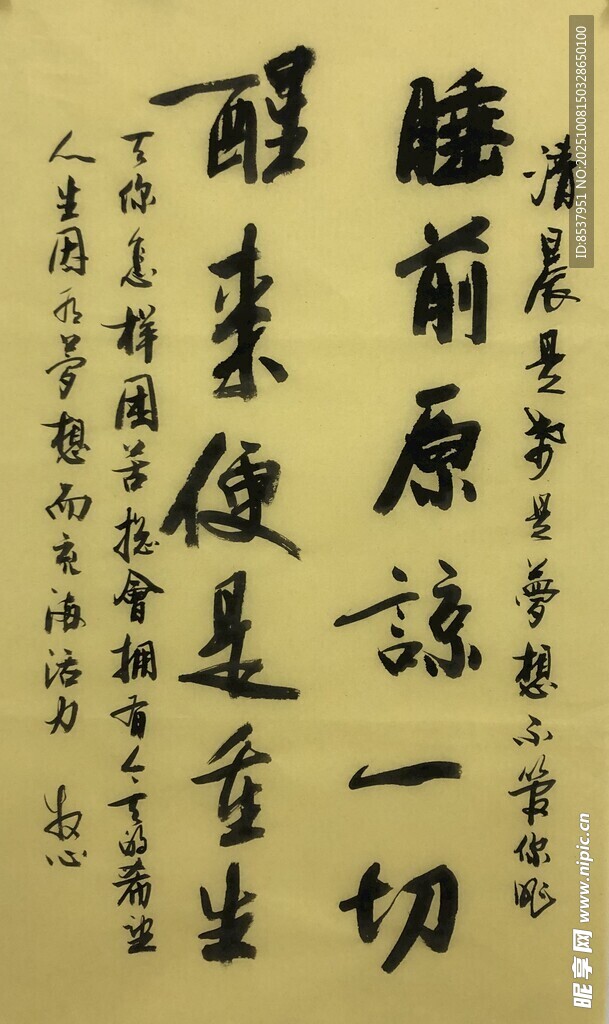 清晨是是夢想不管你昨
睡前原諒一切
醒來便是重生
天你怎樣困苦總會擁有今天的希望
人生因为夢想而充滿活力 牧心
ID:8537951 NO:20251008150328650100
昵享网 www.nipic.cn